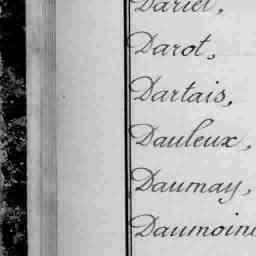 Dariel,
Darot,
Dartais,
Dauleux,
Daumay,
Daumoine